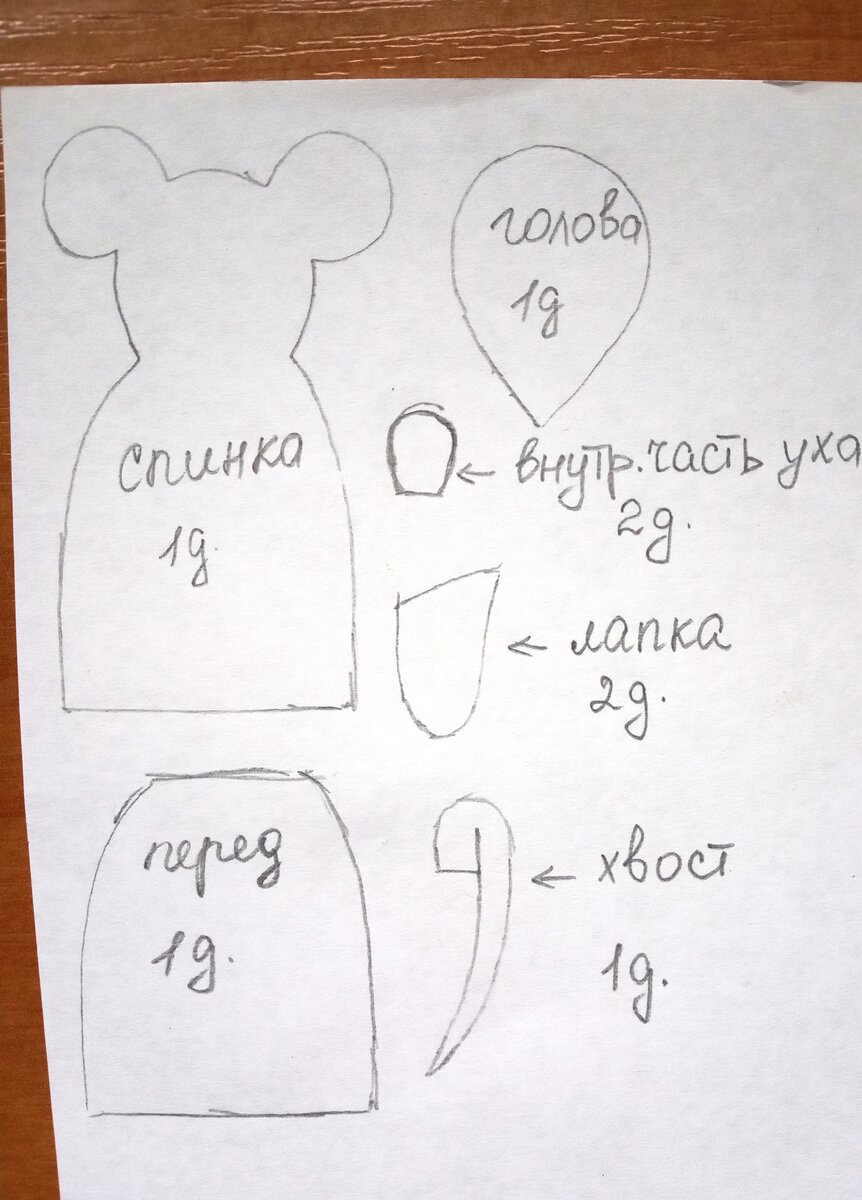 голова
1д
спинка
1д.
← внутр. часть уха
2д.
← лапка
2д.
перед
1д.
← хвост
1д.